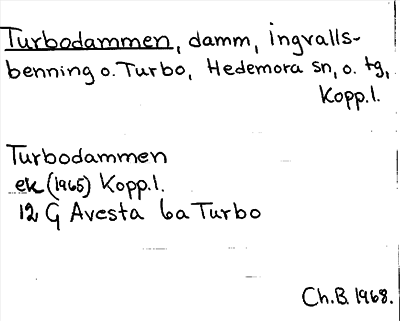 Turbodammen, damm, ingvalls-
benning o. Turbo, Hedemora sn, o. tg,
Kopp.l.
Turbodammen
ek (1965) Kopp.l.
12 G Avesta 6a Turbo
Ch.B. 1968.